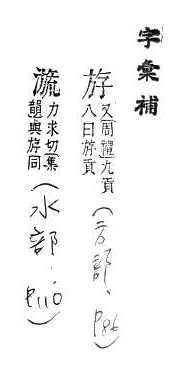 字彙補
斿
又周禮九貢
八曰斿貢
(方部、P86)
力求切集
韻與斿同
(水部、P110)